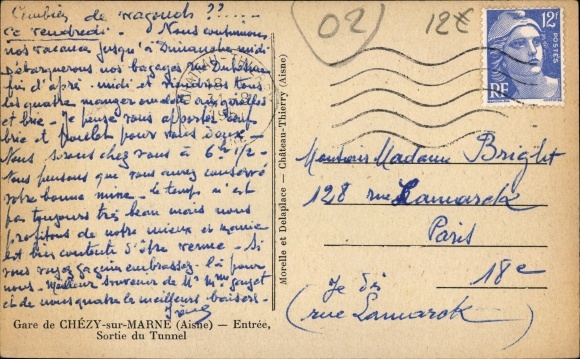 Combien de ragouts ??
Ce vendredi. - Nous continuons
nos vacances jusqu'à Dimanche midi
Débarquerons nos bagages rue
fin d'après-midi et viendrons tous
les quatre manger
et brie - Je pense vous apporter
brie et poulet pour vous deux -
Nous serons chez vous à 6h 1/2 -
Nous pensons que vous aurez conservé
votre bonne mine - le temps n'est
pas toujours très beau mais nous
profitons de notre mieux et mamie
est bien contente d'être venue - Si
vous voyez embrassez la pour
nous - Meilleur souvenir de Mr Mme
et de nous quatre les meilleurs baisers -
02
12€
12F
POSTES
RF
Morelle et Delaplace — Château-Thierry (Aisne)
Monsieur Madame Bright
128 rue Lamarck
Paris
18e
Je dis
(rue Lamarck)
Gare de CHÉZY-sur-MARNE (Aisne) — Entrée,
Sortie du Tunnel